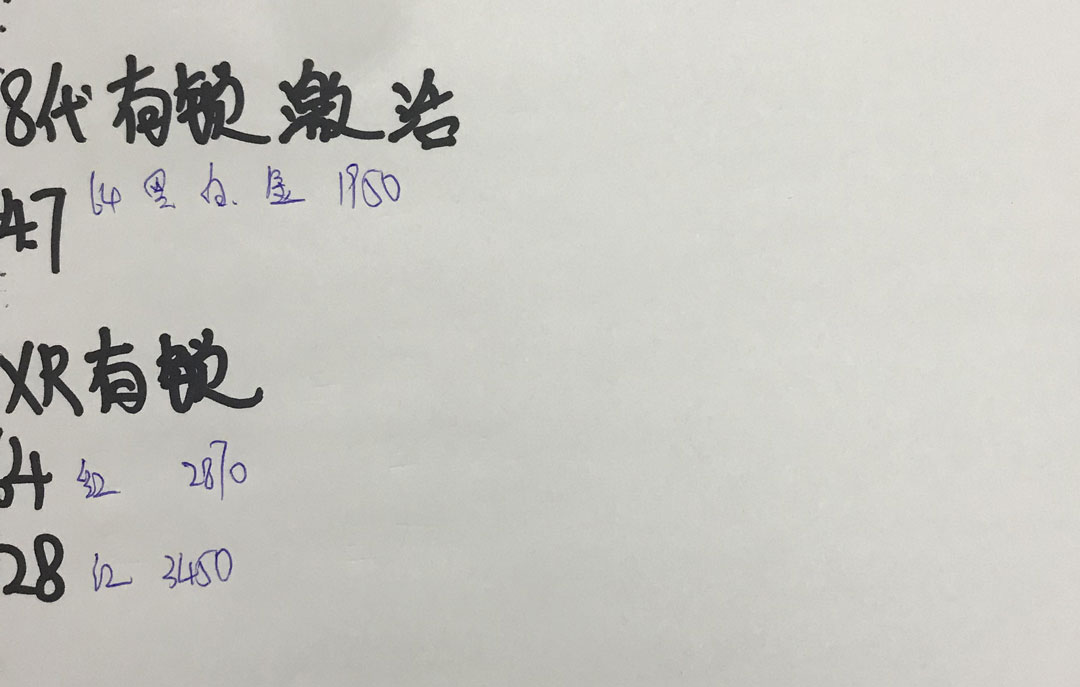 8代有锁激活
4.7 64 黑 白、金 1950
XR有锁
64 红 2870
28 红 3450